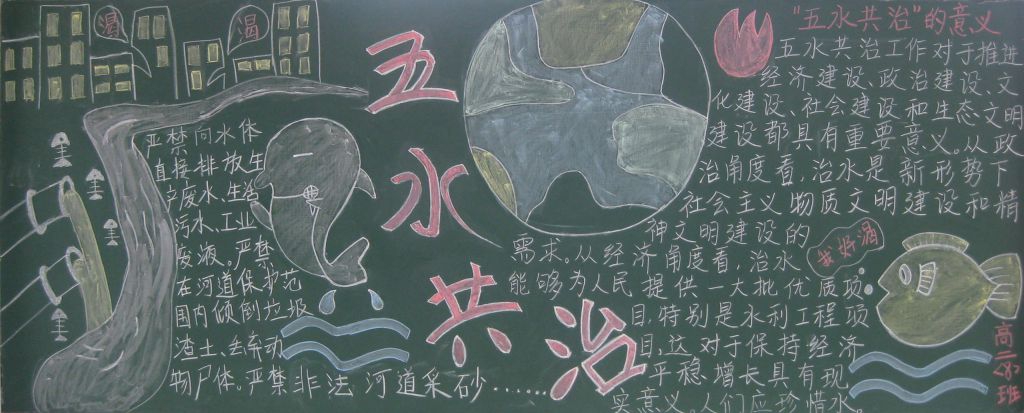 渴
渴
五水共治
严禁向水体
直接排放生
产废水、生活
污水、工业
废液。严禁
在河道保护范
围内倾倒垃圾
渣土、丢弃动
物尸体。严禁非法河道采砂……
"五水共治"的意义
五水共治工作对于推进
经济建设、政治建设、文
化建设、社会建设和生态文明
建设都具有重要意义。从政
治角度看，治水是新形势下
社会主义物质文明建设和精
神文明建设的
需求。从经济角度看，治水
能够为人民提供一大批优质项
目，特别是水利工程项
目，这对于保持经济
平稳增长具有现
实意义。人们应珍惜水。
我好渴
高二(8)班